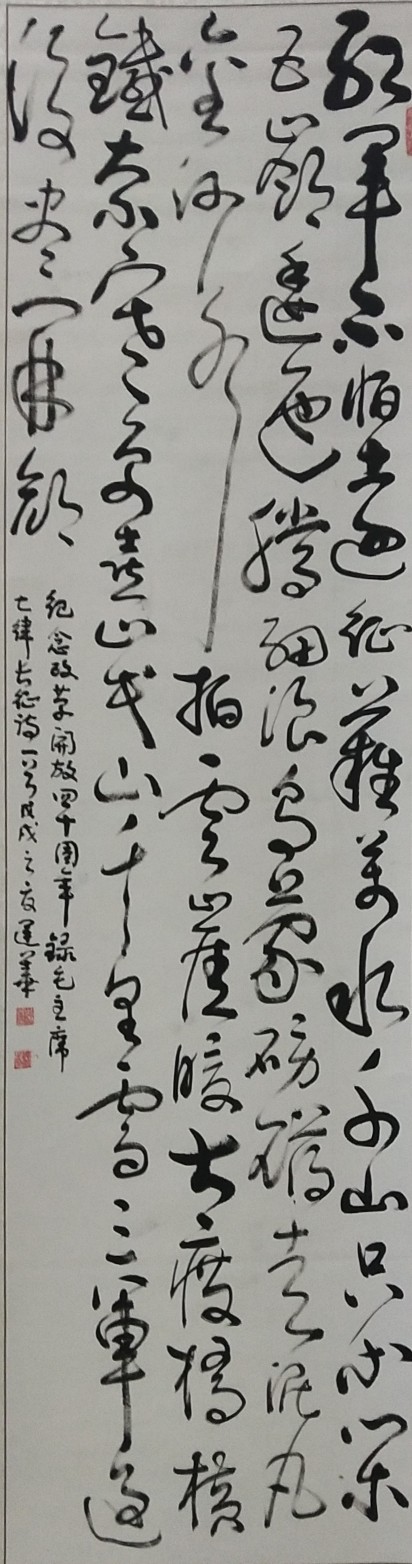 紅軍不怕遠征難萬水千山只等閑
五嶺逶迤騰細浪烏蒙磅礴走泥丸
金沙水拍雲崖暖大渡橋橫
鐵索寒更喜岷山千里雪三軍過
後盡開顏
紀念改革開放四十周年錄毛主席
七律長征詩一首戊戌之夏運華